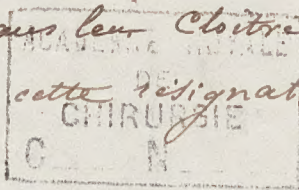 dans leur Cloître
ACADEMIE ROYALE
DE
cette résignat
CHIRURGIE
C N